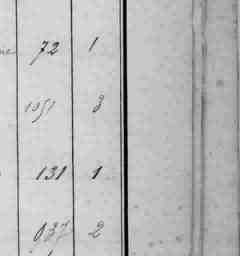 72 1
1051 3
131 1
937 2